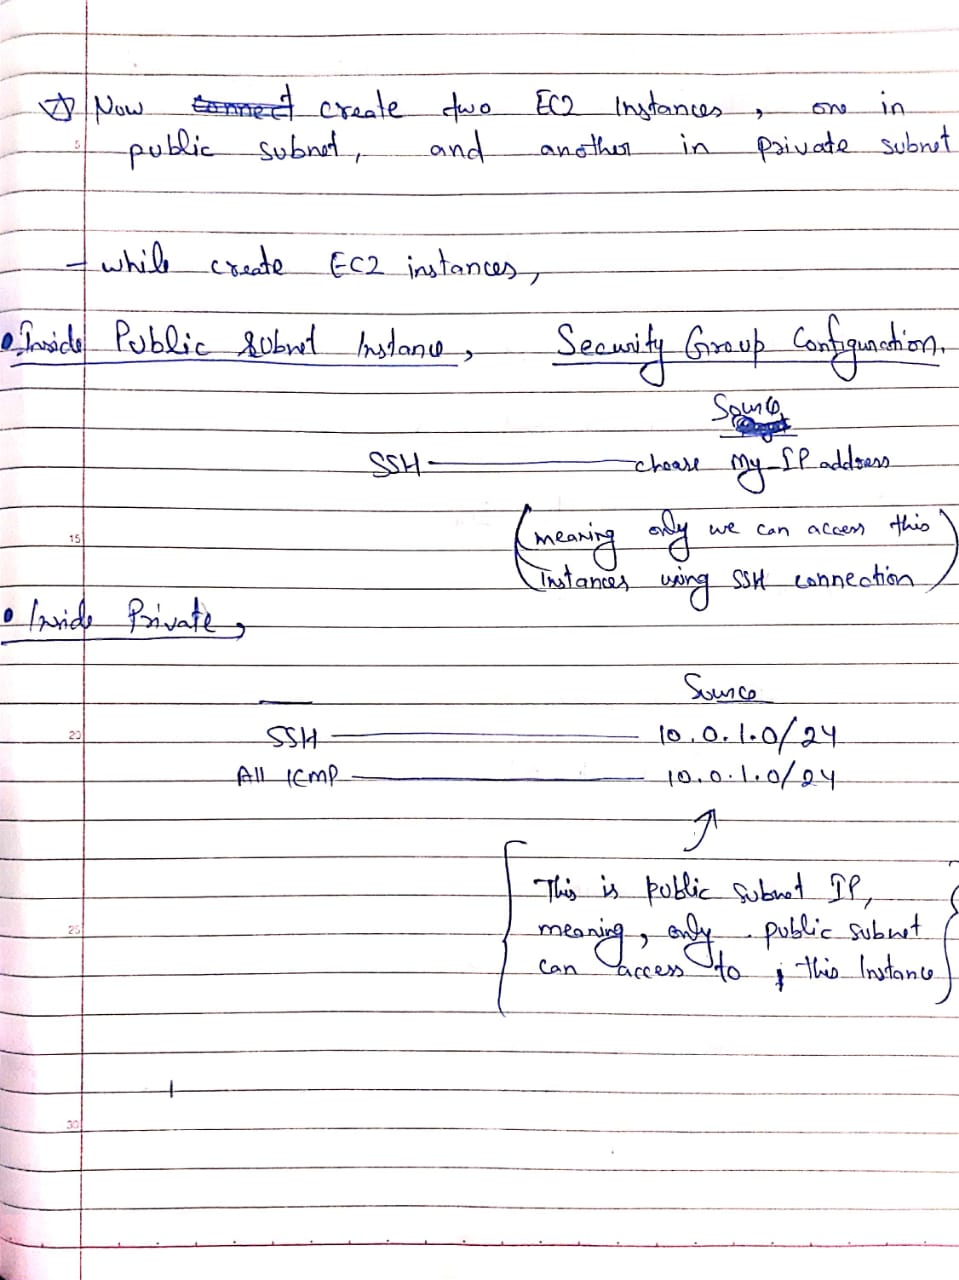 Now connect create two EC2 Instances, one in
5 public subnet, and another in private subnet
- while create EC2 instances,
• Inside Public Subnet Instance, Security Group Configuration.
Source
SSH — choose My-IP address
15 (meaning only we can access this
Instances using SSH connection)
• Inside Private,
Source
20 SSH — 10.0.1.0/24
All ICMP — 10.0.1.0/24
[This is public subnet IP,
25 meaning, only public subnet
can access to this Instance]
30